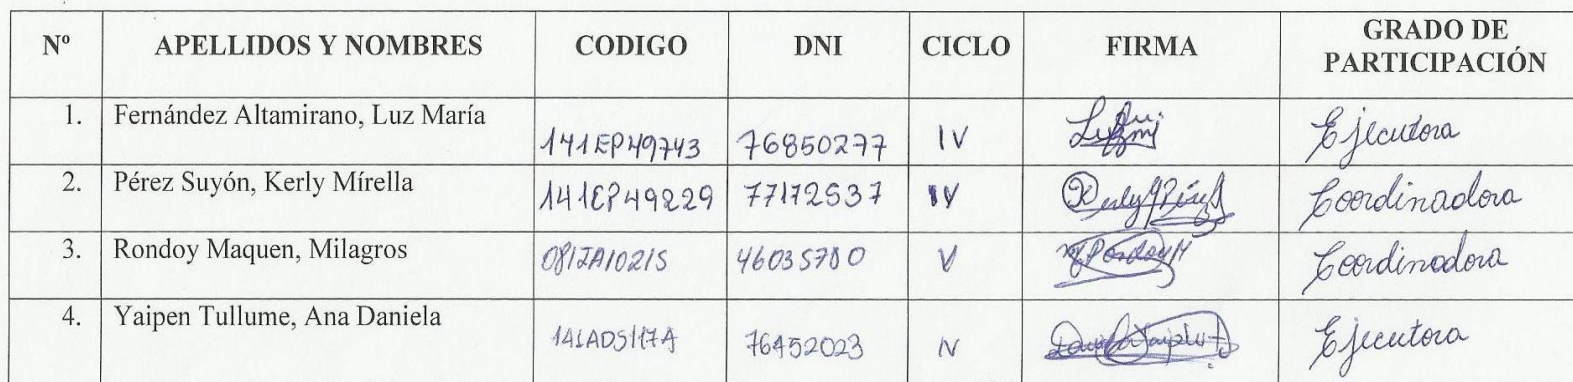 Nº APELLIDOS Y NOMBRES CODIGO DNI CICLO FIRMA GRADO DE PARTICIPACIÓN
1. Fernández Altamirano, Luz María 141EP49743 76850277 IV Ejecutora
2. Pérez Suyón, Kerly Mírella 141EP49229 77172537 IV Coordinadora
3. Rondoy Maquen, Milagros 081JA10215 46035780 V Coordinadora
4. Yaipen Tullume, Ana Daniela 76452023 IV Ejecutora